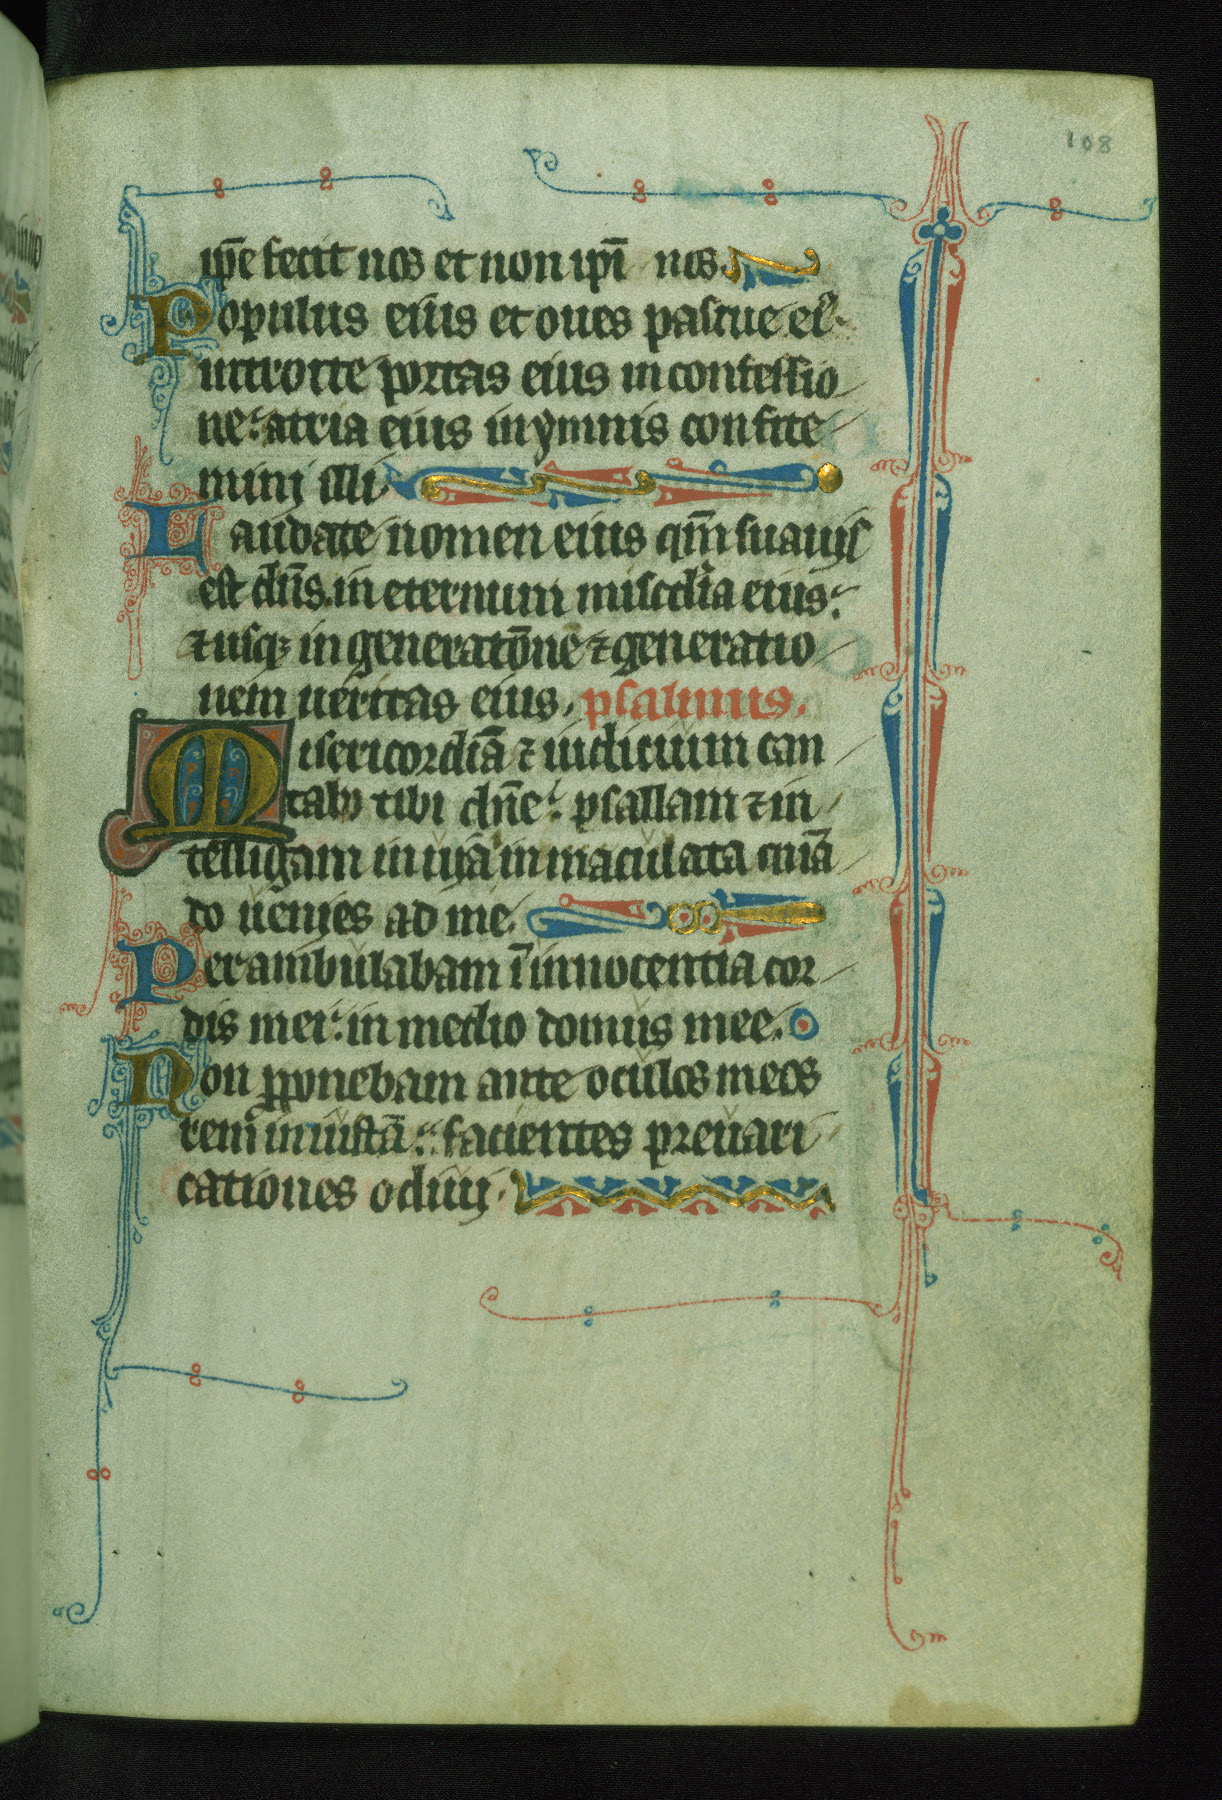 108
ip̄e fecit nos et non ip̄i nos.
Populus eius et oues pascue ei⁹.
introite portas eius in confessio
ne: atria eius in ymnis confite
mini illi
Laudate nomen eius qm̄ suauis
est dn̄s. in eternum misc̄dia eius:
⁊ usq; in generatōne ⁊ generatio
nem ueritas eius. psalmus.
Misericordiā ⁊ iudicium can
tabo tibi dn̄e: psallam ⁊ in
telligam in uia inmaculata cum̄
do uenies ad me.
Perambulabam ī innocentia cor
dis mei: in medio domus mee.
Non ꝓponebam ante oculos meos
rem iniustā: facientes preuari
cationes odiui.